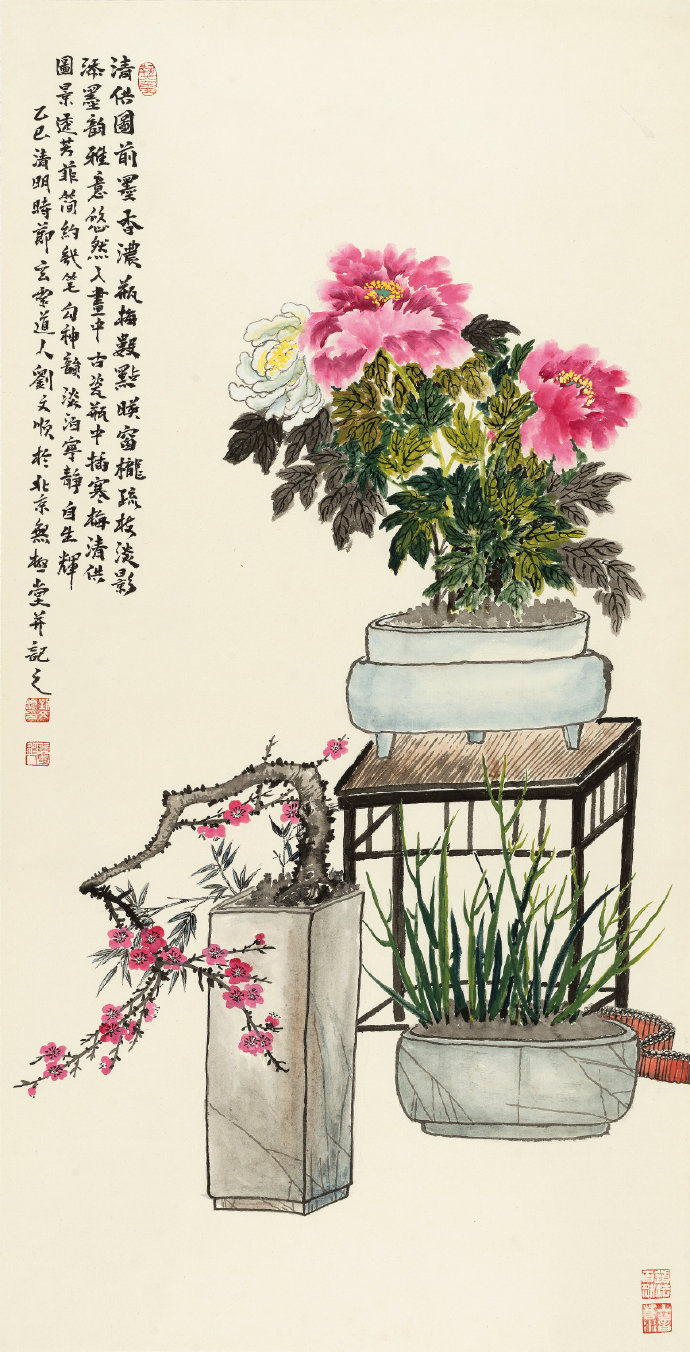 清供圖前墨香濃瓶梅數點暎窗櫳疏枝淡影
添墨韻雅意悠然入畫中古瓷瓶中插寒梅清供
圖景透芳菲簡約幾笔勾神韻淡泊寧靜自生輝
乙巳清明時節玄雲道人劉文順於北京無極堂并記之